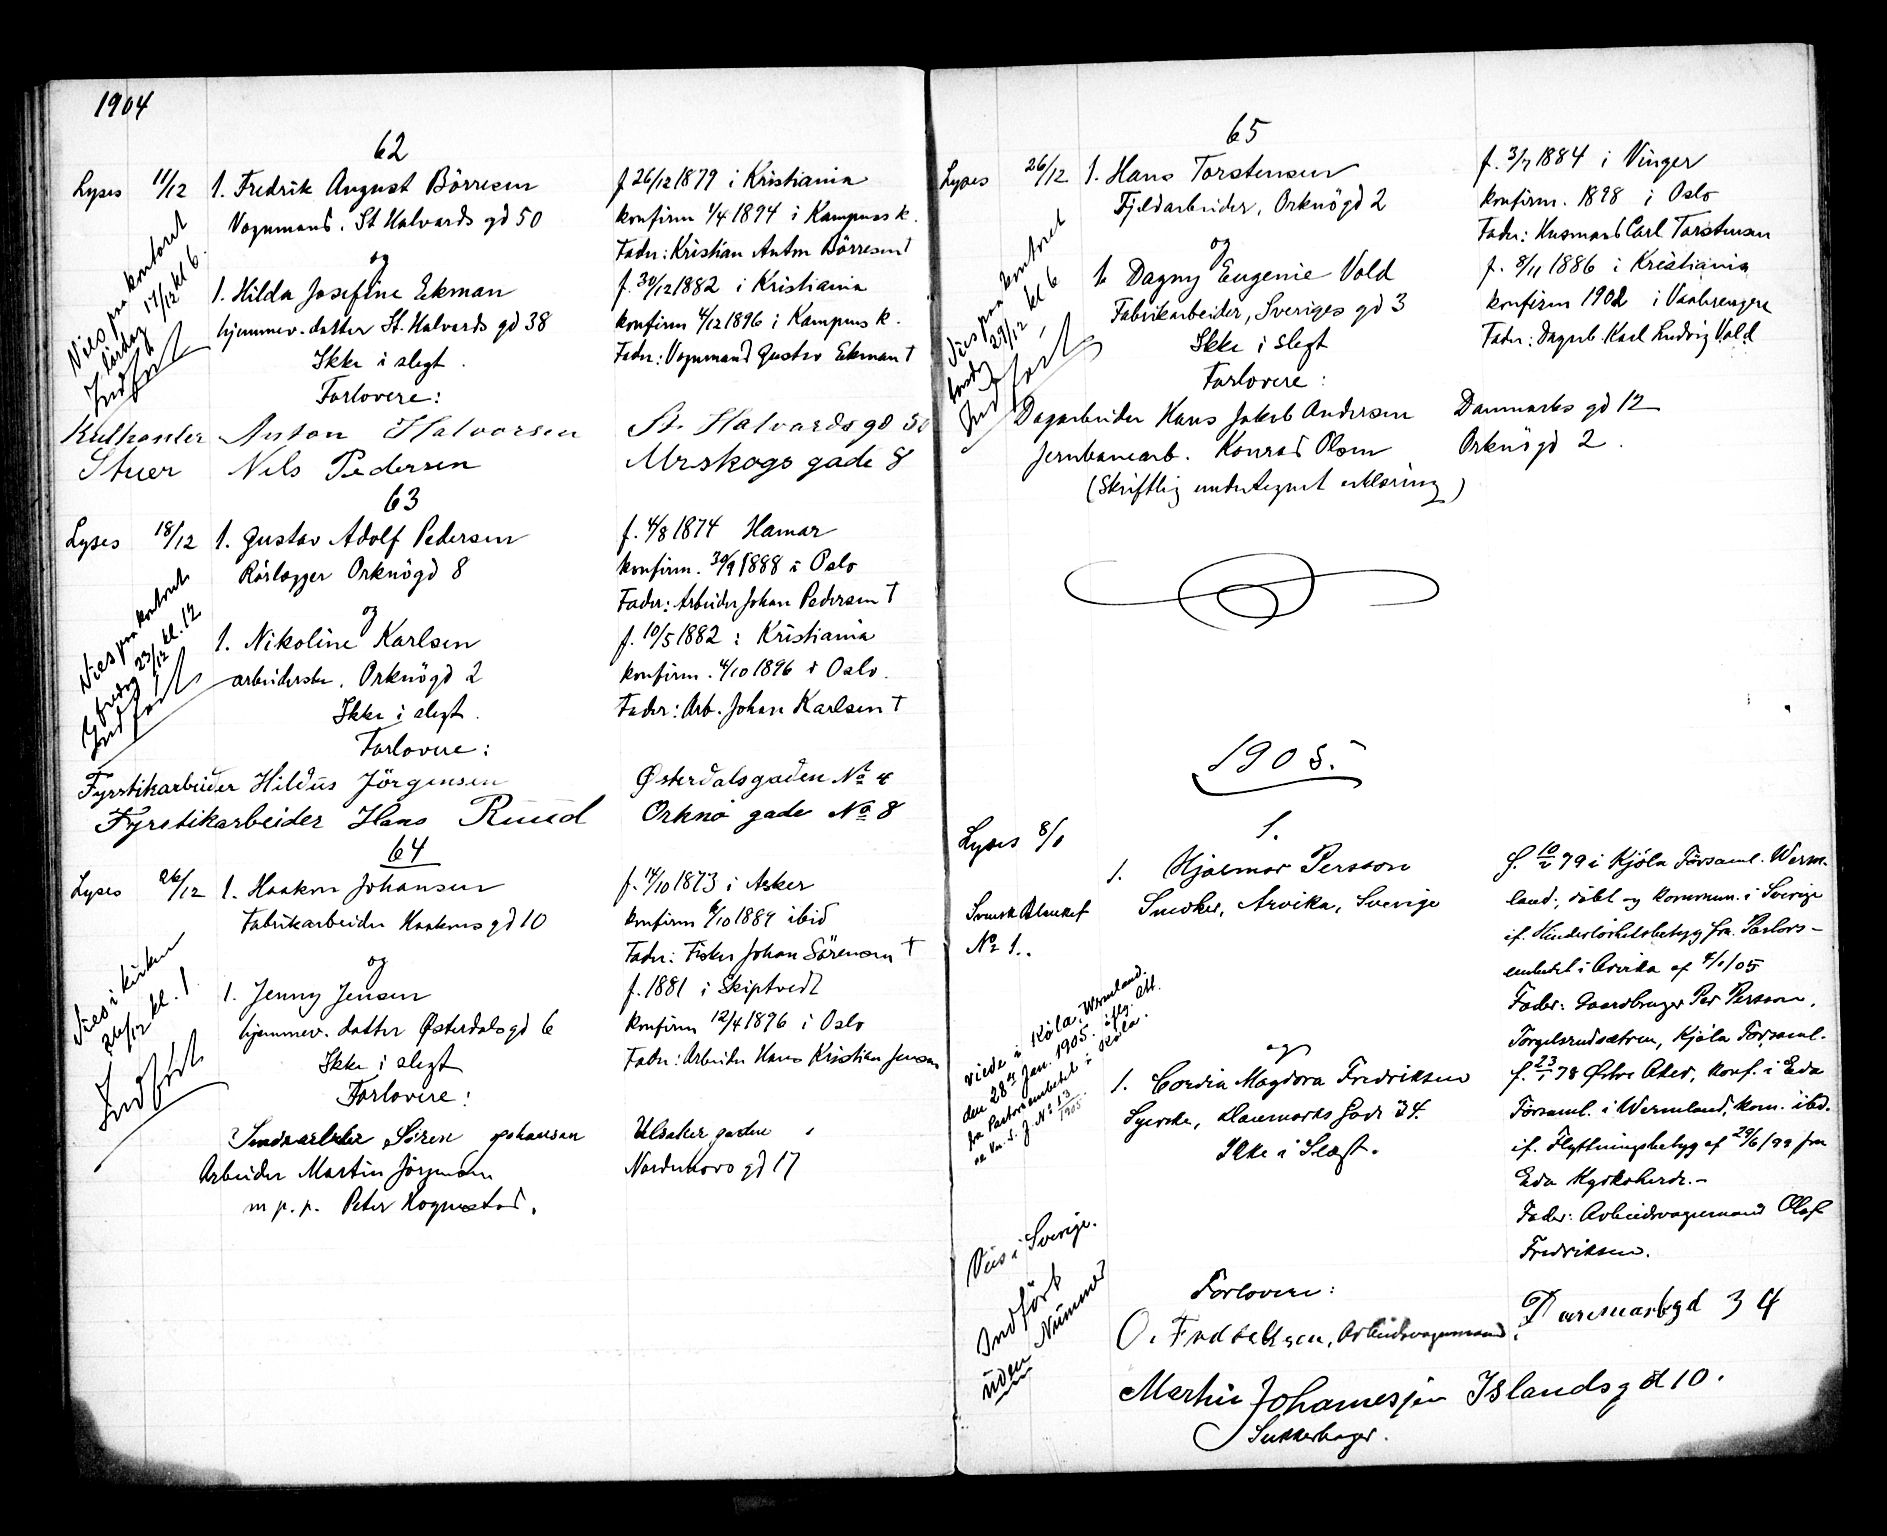 1904
62
Lyses 11/12 1. Fredrik August Börresen f 26/12 1879 i Kristiania
Vognmand. St Halvards gd 50 konfirm 1/4 1894 i Kampens k.
og Fader: Kristian Anton Börresen †
1. Hilda Josefine Ekman f. 30/12 1882 i Kristiania
hjemmev. datter St. Halvards gd 38 konfirm 4/12 1896 i Kampens k.
Ikke i slegt. Fader: Vognmand Gustav Ekman †
Vies paa kontoret
lördag 17/12 kl 6.
Indfört
Forlovere:
Anton Halvorsen St. Halvards gd 50
Stuer Nils Pedersen Urskogs gade 8
63
Lyses 18/12 1. Gustav Adolf Pedersen f. 4/8 1874 Hamar
Rörlægger Orknögd 8 konfirm. 30/9 1888 i Oslo
og Fader: Arbeider Johan Pedersen †
1. Nikoline Karlsen f. 10/5 1882 i Kristiania
arbeiderske, Orknögd 2 konfirm. 4/10 1896 i Oslo.
Ikke i slegt. Fader: Arb. Johan Karlsen †
Vies paa kontoret
fredag 23/12 kl. 12
Indfört
Forlovere:
Fyrstikarbeider Hildus Jörgensen Østerdalsgaden No 4
Fyrstikarbeider Hans Ruud Orknö gade No 8
64
Lyses 26/12 1. Haakon Johansen f. 14/10 1873 i Asker
Fabrikarbeider Haakons gd 10 konfirm 6/10 1889 ibid
og Fader: Fisker Johan Sörensen †
1. Jenny Jensen f. 1881 i Skiptvedt
hjemmev. datter Østerdals gd 6 konfirm 12/4 1896 i Oslo
Ikke i slegt Fader: Arbeider Hans Kristian Jensen
Vies i kirken
26/12 kl. 1
Indfört
Forlovere:
Sören Johansen Ulsaker gaden 1
Arbeider Martin Jörgensen Nordenhovs gd 17
m p. p. Peter Hognestad.
65
Lyses 26/12 1. Hans Torstensen f. 3/7 1884 i Vinger
Fjeldarbeider, Orknögd 2 konfirm. 1898 i Oslo
og Fader: Husmand Carl Torstensen
1. Dagny Eugenie Vold f. 8/11 1886 i Kristiania
Fabrikarbeider, Sveriges gd 3 konfirm 1902 i Vaalerengen
Ikke i slegt Fader: Dagarb. Karl Ludvig Vold
Vies paa kontoret
torsdag 29/12 kl 6
Indfört
Forlovere:
Dagarbeider Hans Jakob Andersen Danmarks gd 12
Jernbanearb. Konrad Olsen Orknögd 2.
(Skriftlig undertegnet erklæring)
1905.
1.
Lyses 8/1 1. Hjalmar Persson f. 10/2 79 i Kjöla Församl. Werm-
Svensk Blanket Snedker, Arvika, Sverige land, döbt og kommun. i Sverige
No 1. if. Hinderlöshetsbetyg fra Pastors-
embetet i Arvika af 4/1/05
Fader: Gaardbruger Per Persson,
Torgelsrudsætren, Kjöla Församl.
og
1. Cordia Magdora Fredriksen f. 23/1 78 Østre Aker, konf. i Eda
Syerske, Danmarks Gade 34. Församl. i Wermland, kom. ibid.
Ikke i Slægt. if. Flyttningsbetyg af 29/6/99 fra
Eda Kyrkoherde.-
Fader: Arbeidsvognmand Olaf
Fredriksen.
Viede i Köla, Wermland,
den 28de Jan. 1905. iflg. Att.
fra Pastorsembetet i Köla.
J. No 13/1905.
Vies i Sverige.
Indfört
uden Nummer
Forlovere:
O. Fredriksen, Arbeidsvognmand, Danmarksgd 34
Martin Johannesjen Islandsgd 10.
Sukkerbager.